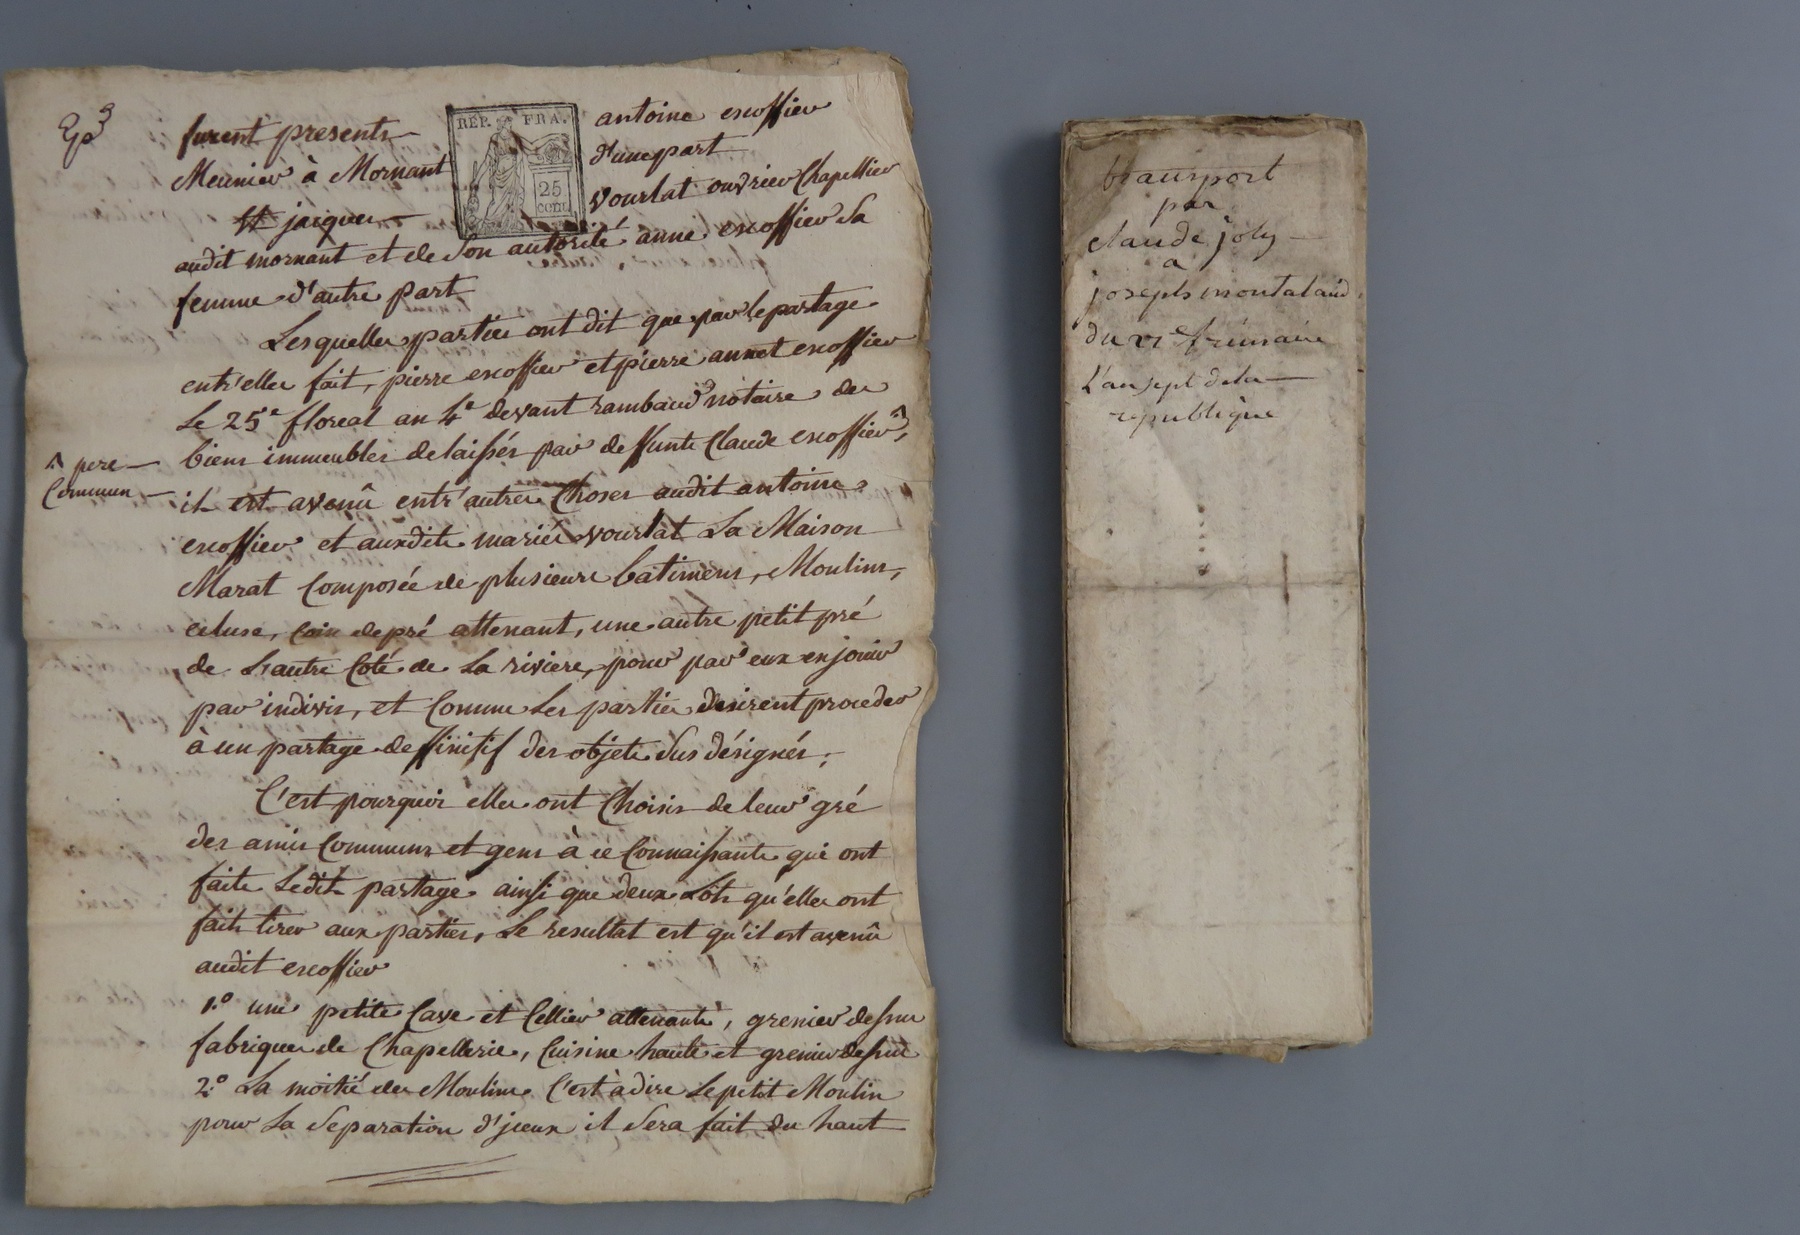 furent presents
antoine escoffier
Meunier à Mornant
d'une part
REP. FRA.
25
cent
Et jacques
vourlat ouvrier Chapellier
audit mornant et de son autorité anne escoffier sa
femme d'autre part
Lesquelles parties ont dit que par le partage
entr'elles fait, pierre escoffier et pierre annet escoffier
Le 25e floreal an 4e devant rambaud notaire des
biens immeubles delaissés par deffunt Claude escoffier,
^ pere
Commun
il est avenû entr'autres Choses audit antoine
escoffier et auxdits mariés vourlat La Maison
Marat Composée de plusieurs batimens, Moulins,
ecluse, coin de pré attenant, une autre petit pré
de L'autre Coté de La riviere, pour par eux en jouir
par indivis, et Comme Les parties desirent proceder
à un partage deffinitif des objets sus désignés,
C'est pourquoi elles ont Choisis de leur gré
des amis Communs et gens à ce Connaissants qui ont
faits Ledit partage ainsi que deux Lots qu'elles ont
faits tirer aux parties, Le resultat est qu'il est avenû
audit escoffier
1.o une petite Cave et Cellier attenants, grenier dessus
fabriques de Chapellerie, Cuisine haute et grenier dessus
2.o La moitié des Moulins C'est à dire Le petit Moulin
pour La Separation d'jceux il Sera fait du haut
transport
par
claude joly
a
joseph montaland
du frimaire
L'an sept de la
republique